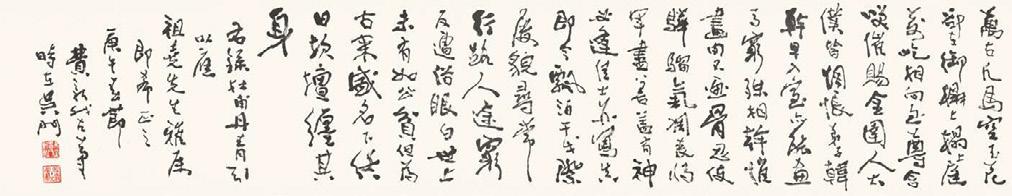 萬古凡馬空玉花
却在御榻上榻上庭
前屹相向至尊含
笑催賜金圉人太
僕皆惆悵弟子韓
幹早入室亦能畫
馬窮殊相幹惟
畫肉不畫骨忍使
驊騮氣凋喪將
軍畫善蓋有神
必逢佳士亦寫真
即今飄泊干戈際
屢貌尋常
行路人途窮
反遭俗眼白世上
未有如公貧但看
古來盛名下終
日坎壈纏其
身
右錄杜甫丹青引
以應
祖堯先生雅屬
即希正之
庚午春節
費新我左筆
時在吳門